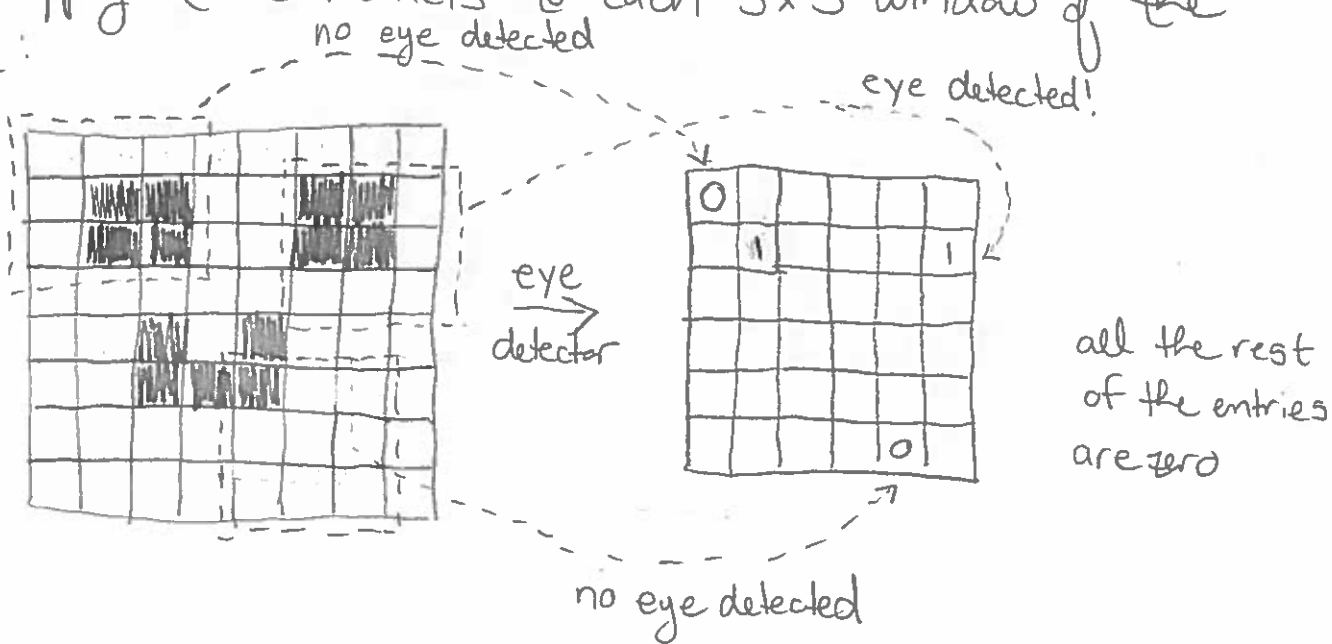 each 3x3 window of the
no eye detected
eye detected!
0
1
1
eye
detector
all the rest
of the entries
are zero
0
no eye detected